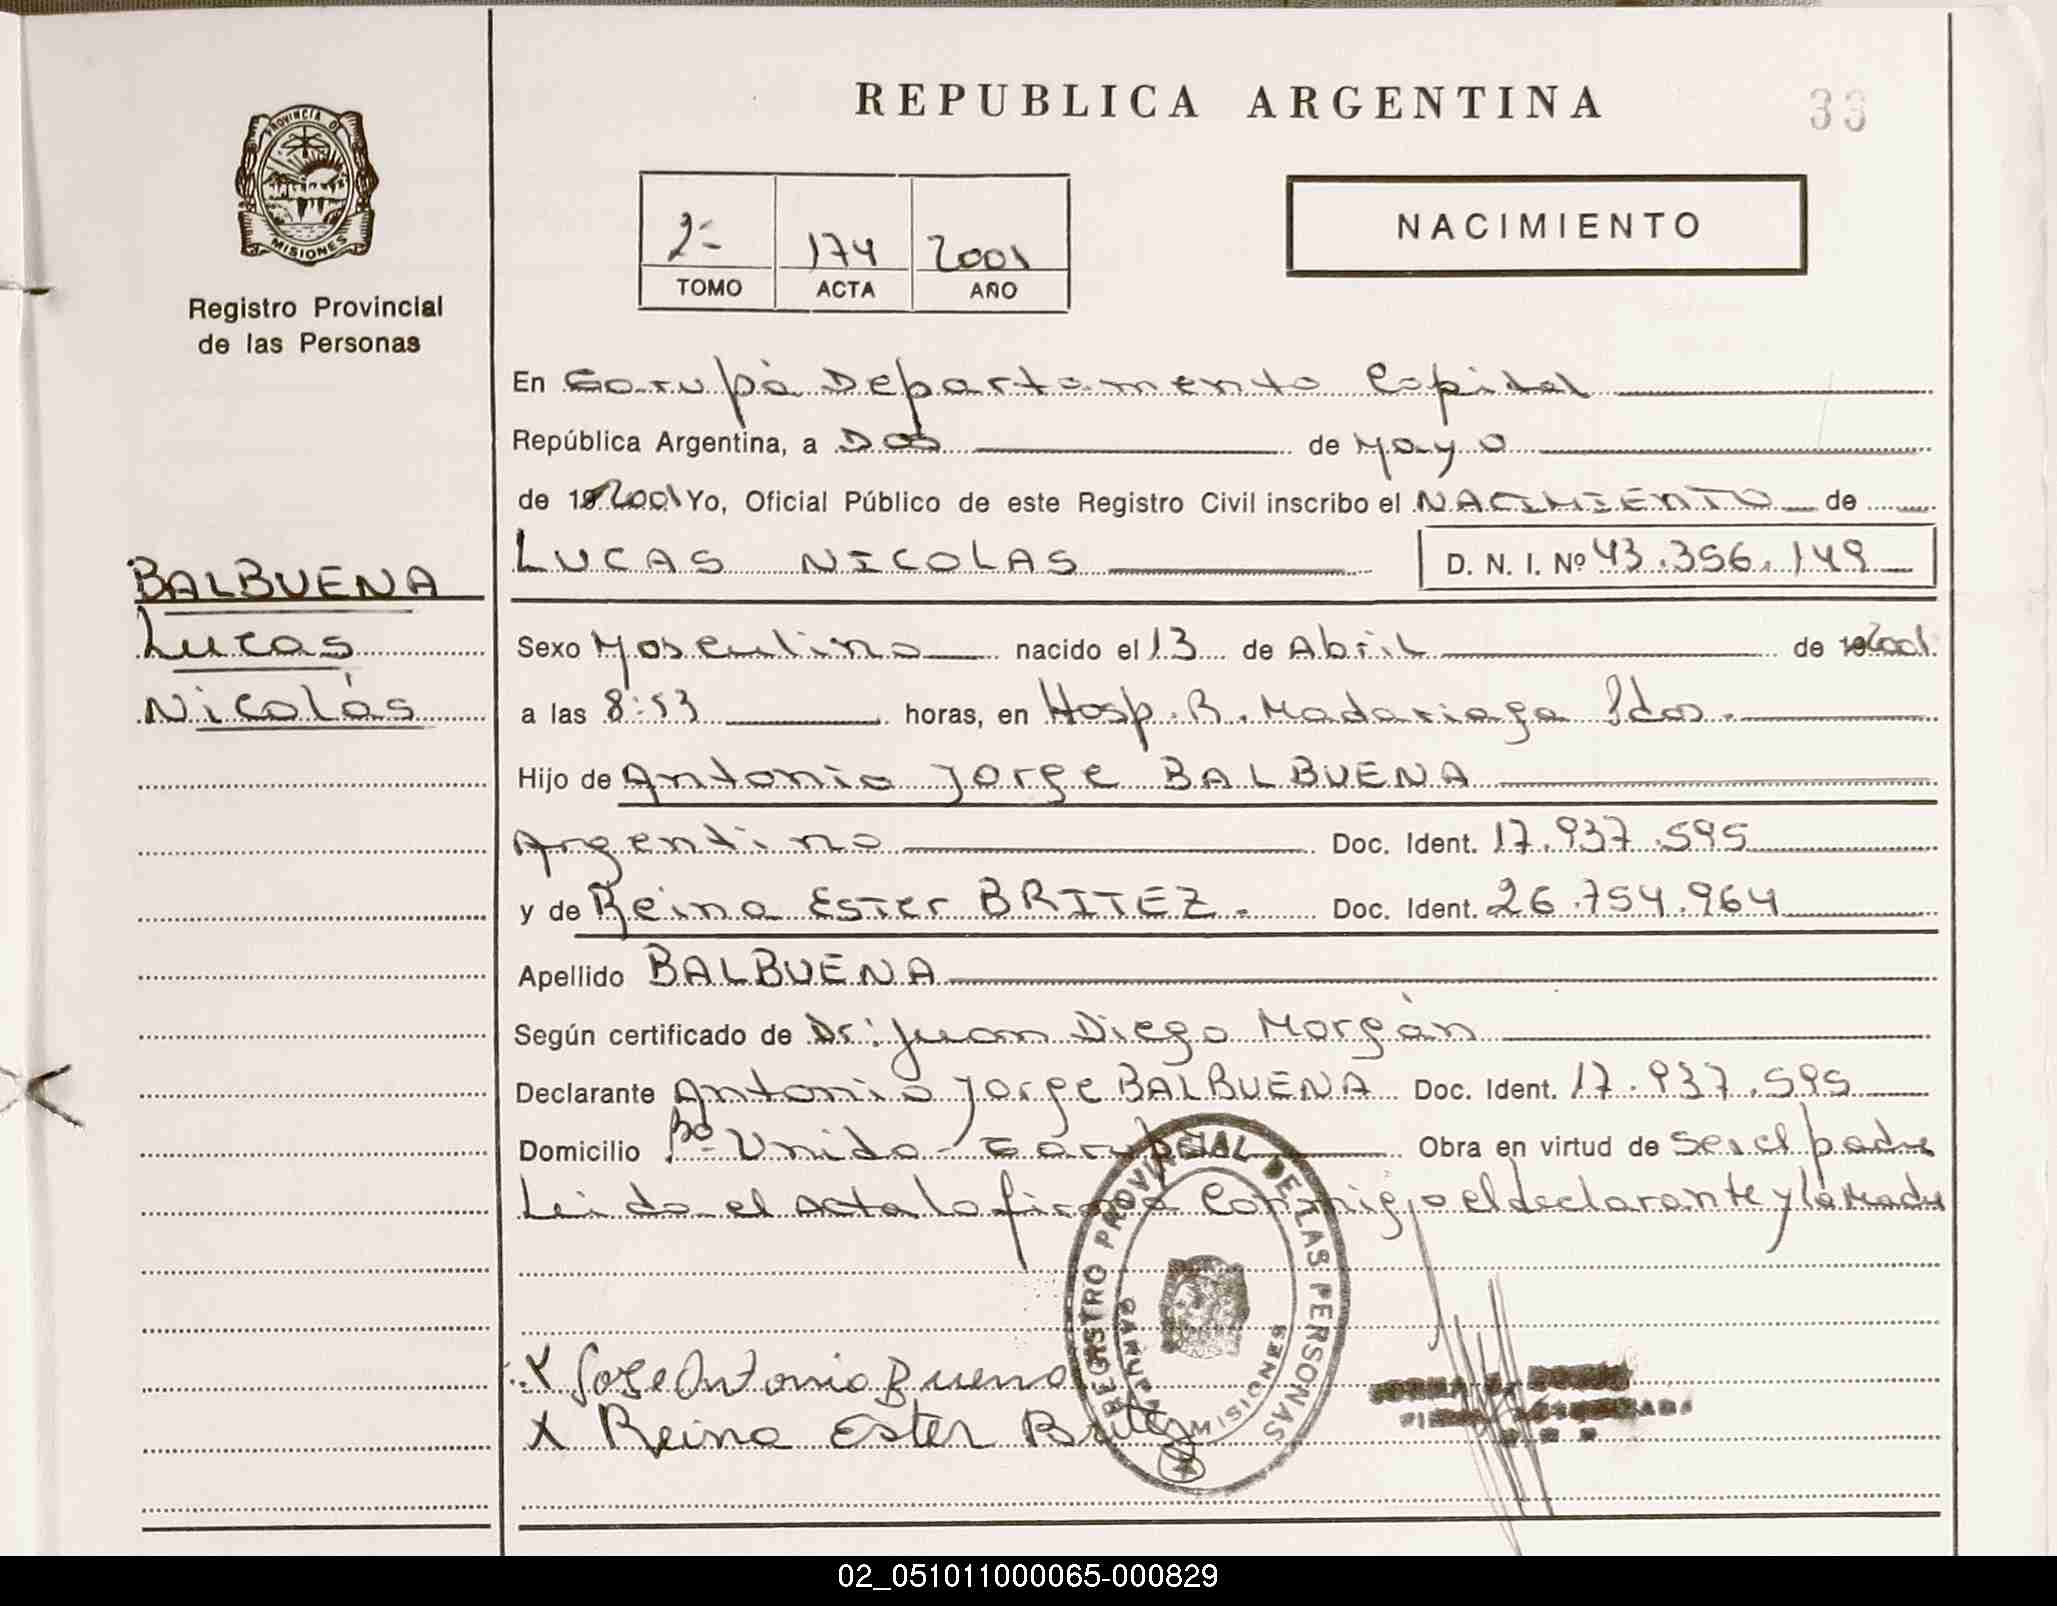 REPUBLICA ARGENTINA
33
PROVINCIA DE
MISIONES
Registro Provincial
de las Personas
2-
174
2001
TOMO
ACTA
AÑO
NACIMIENTO
En Garupá Departamento Capital
República Argentina, a Dos de Mayo
de 19 2001 Yo, Oficial Público de este Registro Civil inscribo el NACIMIENTO de
LUCAS NICOLAS D. N. I. Nº 43.356.149
BALBUENA
Lucas
Nicolás
Sexo Masculino nacido el 13 de Abril de 19 2001
a las 8:53 horas, en Hosp. R. Madariaga Pdas.
Hijo de Antonio Jorge BALBUENA
Argentino Doc. Ident. 17.937.595
y de Reina Ester BRITEZ. Doc. Ident. 26.754.964
Apellido BALBUENA
Según certificado de Dr: Juan Diego Morgán
Declarante Antonio Jorge BALBUENA Doc. Ident. 17.937.595
Domicilio Bº Unido - Garupá Obra en virtud de ser el padre
Leido el acta la firma conmigo el declarante y la Madre
REGISTRO PROVINCIAL DE LAS PERSONAS
GARUPA
MISIONES
X Jose Antonio Buena
X Reina Ester Britez
02_051011000065-000829